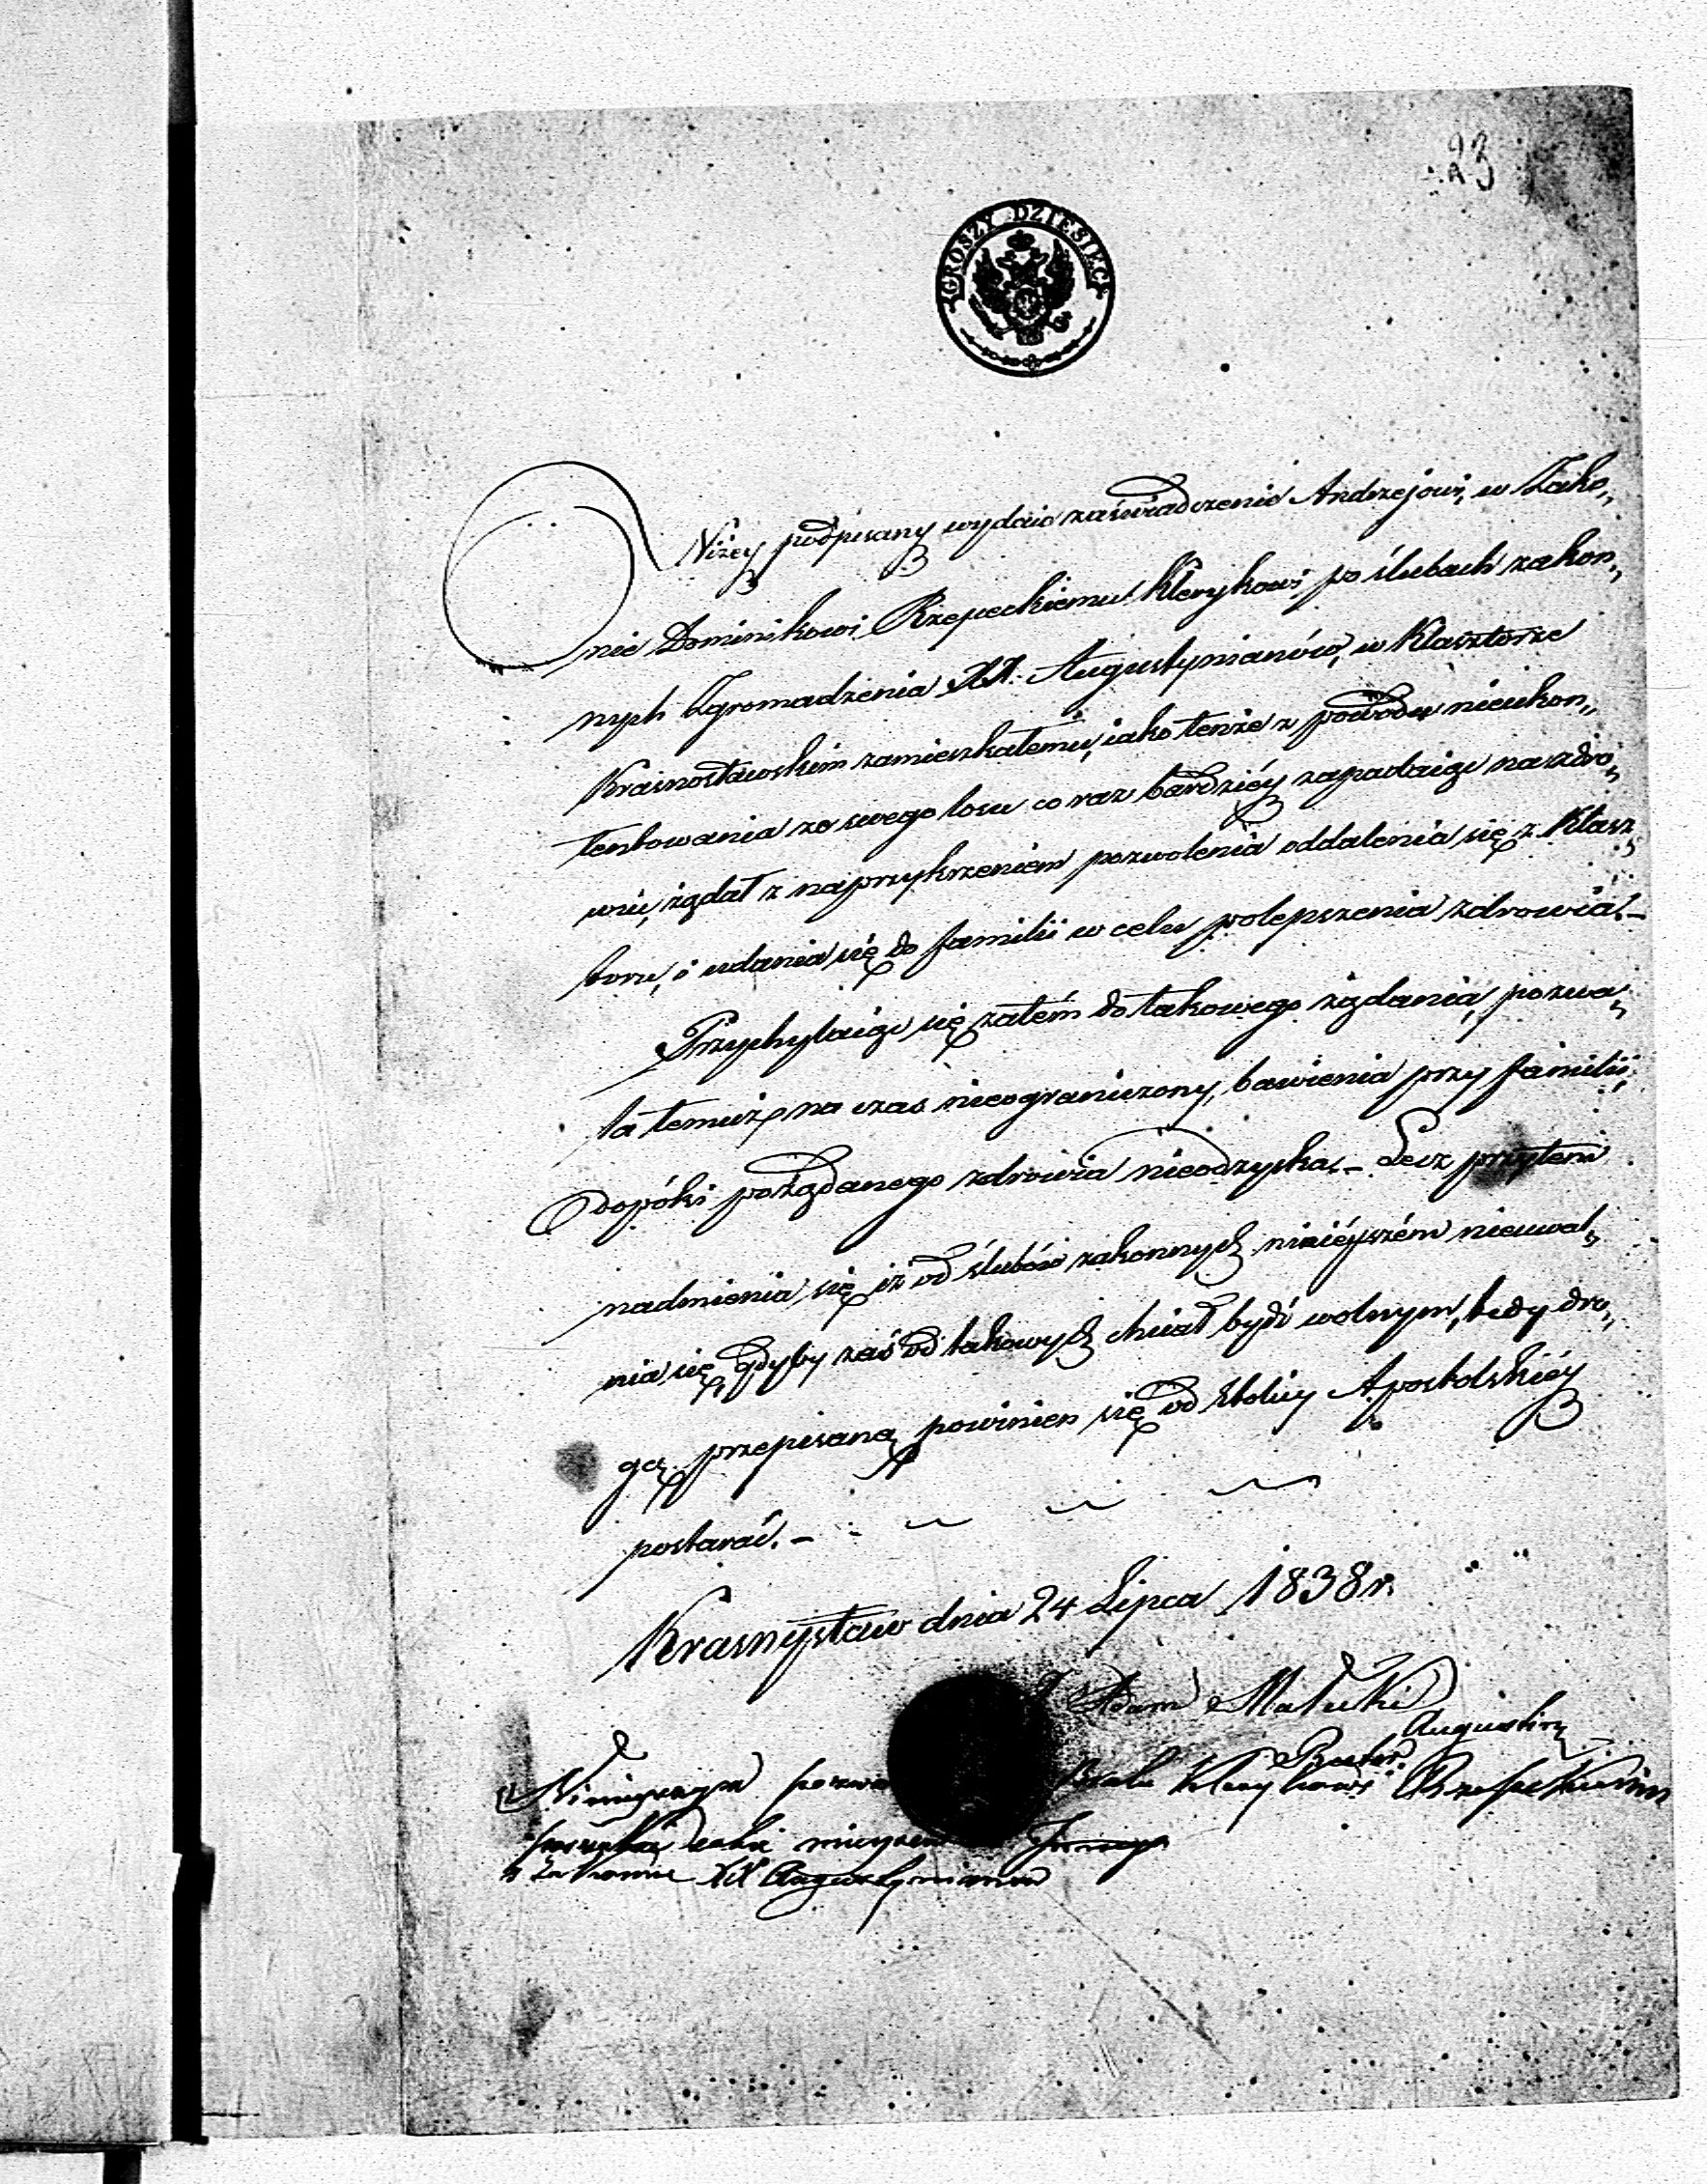 23
GROSZY DZIESIĘĆ
Niżey podpisany wydaie zaświadczenie Andrzejowi, w Zako„
nie Dominikowi Rzepeckiemu Klerykowi po ślubach zakon„
nych Zgromadzenia XX. Augustynianów, w Klasztorze
Krasnostawskim zamieszkałemu, iako tenże z powodu nieukon„
tentowania ze swego losu co raz bardziéy zapadaiąc na zdro„
wiu, żądał z naprzykrzeniem pozwolenia oddalenia się z Klasz„
toru, i udania się do familii w celu polepszenia zdrowia. –
Przychylaiąc się zatém do takowego żądania, pozwa„
la temuż na czas nieograniczony, bawienia przy familii,
dopóki pożądanego zdrowia nieodzyska. – Lecz przytem
nadmienia się iż od ślubów zakonnych ninieyszém nieuwal„
nia się, gdyby zaś od takowych chciał bydź wolnym, tedy dro„
gą przepisaną powinien się od Stolicy Apostolskiéy
postarać. –
Krasnystaw dnia 24 Lipca 1838 r.
X Adam Małecki
Augustin
Rector
Klerykowi Rzepeckiemu
w Zakonie XX Augustynianow